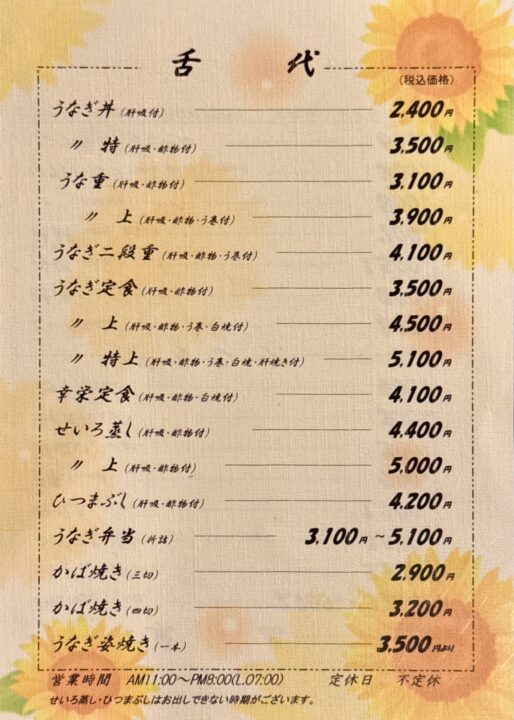 舌代
(税込価格)
うなぎ丼(肝吸付) 2,400円
〃 特(肝吸・酢物付) 3,500円
うな重(肝吸・酢物付) 3,100円
〃 上(肝吸・酢物・う巻付) 3,900円
うなぎ二段重(肝吸・酢物・う巻付) 4,100円
うなぎ定食(肝吸・酢物付) 3,500円
〃 上(肝吸・酢物・う巻・白焼付) 4,500円
〃 特上(肝吸・酢物・う巻・白焼・肝焼き付) 5,100円
幸栄定食(肝吸・酢物・白焼付) 4,100円
せいろ蒸し(肝吸・酢物付) 4,400円
〃 上(肝吸・酢物付) 5,000円
ひつまぶし(肝吸・酢物付) 4,200円
うなぎ弁当(折詰) 3,100円~5,100円
かば焼き(三切) 2,900円
かば焼き(四切) 3,200円
うなぎ姿焼き(一本) 3,500円より
営業時間 AM11:00～PM8:00(L.O7:00) 定休日 不定休
せいろ蒸し・ひつまぶしはお出しできない時期がございます。